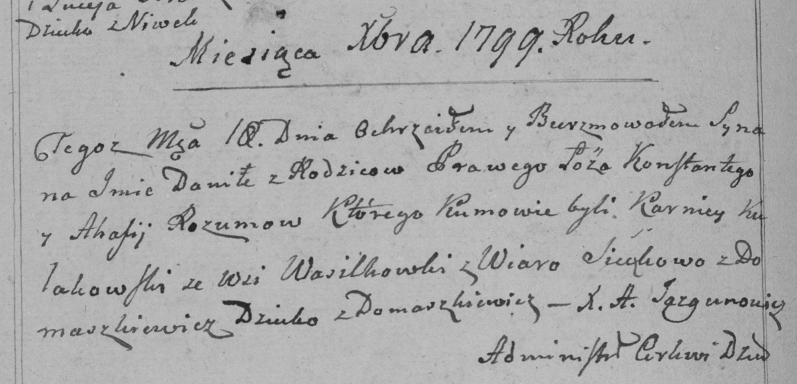 Dziecko z Niwek
Miesiąca Xbra. 1799. Roku.
Tegoz Mca 18. Dnia Ochrzciłem y Burzmowałem Syna
na Imie Danił z Rodzicow Prawego Łoża Konstantego
y Ahafij Rozumow Którego Kumowie byli. Karniey Ku
lakowski ze Wsi Wasilkowki z Wiaro Sieczkowo z Do
maszkiewicz Dziecko z Domaszkiewicz — X. A. Jazgunowicz
Administr Cerkwi Dzied